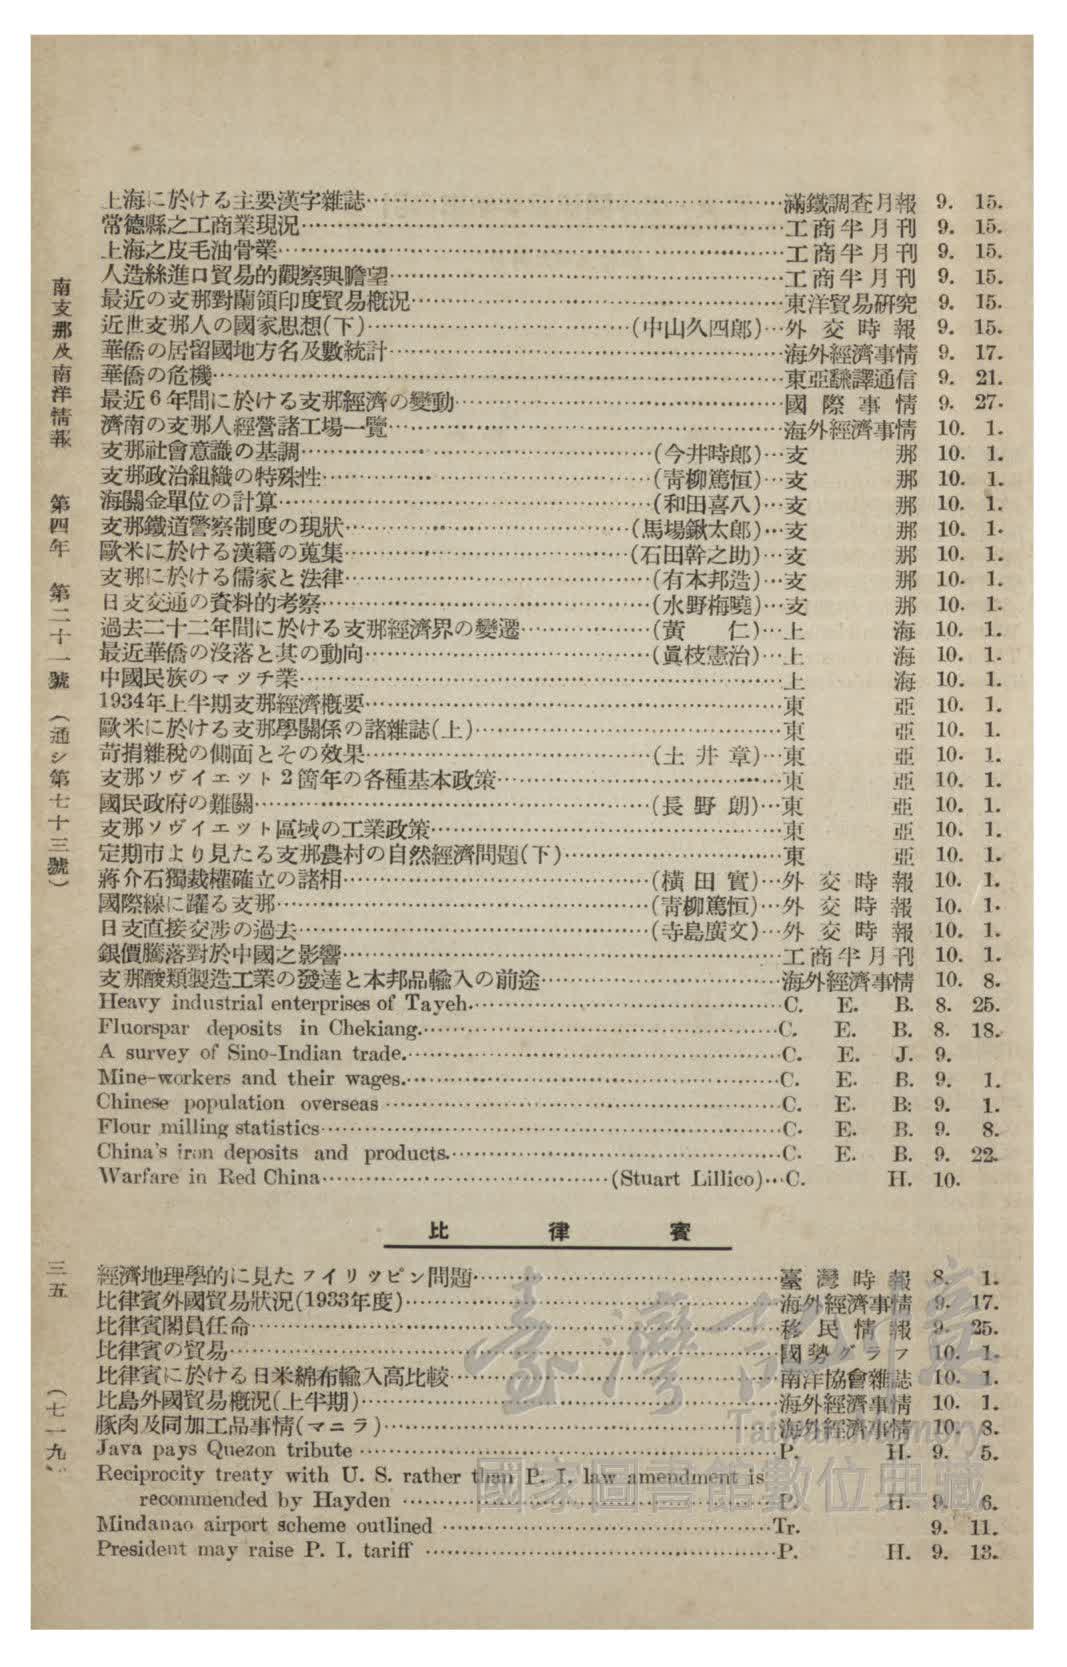 上海に於ける主要漢字雜誌……滿鐵調查月報 9. 15.
常德縣之工商業現況……工商半月刊 9. 15.
上海之皮毛油骨業……工商半月刊 9. 15.
人造絲進口貿易的觀察與瞻望……工商半月刊 9. 15.
最近の支那對蘭領印度貿易槪況……東洋貿易硏究 9. 15.
近世支那人の國家思想(下)……(中山久四郎)…外交時報 9. 15.
華僑の居留國地方名及數統計……海外經濟事情 9. 17.
華僑の危機……東亞飜譯通信 9. 21.
最近6年間に於ける支那經濟の變動……國際事情 9. 27.
濟南の支那人經營諸工場一覽……海外經濟事情 10. 1.
支那社會意識の基調……(今井時郎)…支那 10. 1.
支那政治組織の特殊性……(靑柳篤恒)…支那 10. 1.
海關金單位の計算……(和田喜八)…支那 10. 1.
支那鐵道警察制度の現狀……(馬場鍬太郎)…支那 10. 1.
歐米に於ける漢籍の蒐集……(石田幹之助)…支那 10. 1.
支那に於ける儒家と法律……(有本邦造)…支那 10. 1.
日支交通の資料的考察……(水野梅曉)…支那 10. 1.
過去二十二年間に於ける支那經濟界の變遷……(黃仁)…上海 10. 1.
最近華僑の沒落と其の動向……(眞枝憲治)…上海 10. 1.
中國民族のマツチ業……上海 10. 1.
1934年上半期支那經濟槪要……東亞 10. 1.
歐米に於ける支那學關係の諸雜誌(上)……東亞 10. 1.
苛捐雜稅の側面とその效果……(土井章)…東亞 10. 1.
支那ソヴイエット2箇年の各種基本政策……東亞 10. 1.
國民政府の難關……(長野朗)…東亞 10. 1.
支那ソヴイエット區域の工業政策……東亞 10. 1.
定期市より見たる支那農村の自然經濟問題(下)……東亞 10. 1.
蔣介石獨裁權確立の諸相……(橫田實)…外交時報 10. 1.
國際線に躍る支那……(靑柳篤恒)…外交時報 10. 1.
日支直接交涉の過去……(寺島廣文)…外交時報 10. 1.
銀價騰落對於中國之影響……工商半月刊 10. 1.
支那酸類製造工業の發達と本邦品輸入の前途……海外經濟事情 10. 8.
Heavy industrial enterprises of Tayeh……C. E. B. 8. 25.
Fluorspar deposits in Chekiang……C. E. B. 8. 18.
A survey of Sino-Indian trade……C. E. J. 9.
Mine-workers and their wages……C. E. B. 9. 1.
Chinese population overseas……C. E. B: 9. 1.
Flour milling statistics……C. E. B. 9. 8.
China's iron deposits and products……C. E. B. 9. 22.
Warfare in Red China……(Stuart Lillico)…C. H. 10.
比律賓
經濟地理學的に見たフイリッピン問題……臺灣時報 8. 1.
比律賓外國貿易狀況(1933年度)……海外經濟事情 9. 17.
比律賓閣員任命……移民情報 9. 25.
比律賓の貿易……國勢グラフ 10. 1.
比律賓に於ける日米綿布輸入高比較……南洋協會雜誌 10. 1.
比島外國貿易槪況(上半期)……海外經濟事情 10. 1.
豚肉及同加工品事情(マニラ)……海外經濟事情 10. 8.
Java pays Quezon tribute……P. H. 9. 5.
Reciprocity treaty with U. S. rather than P. I. law amendment is
recommended by Hayden……P. H. 9. 6.
Mindanao airport scheme outlined……Tr. 9. 11.
President may raise P. I. tariff……P. H. 9. 13.
南支那及南洋情報 第四年 第二十一號 (通シ第七十三號)
三五
(七一九)
臺灣記憶
Taiwan Memory
國家圖書館數位典藏